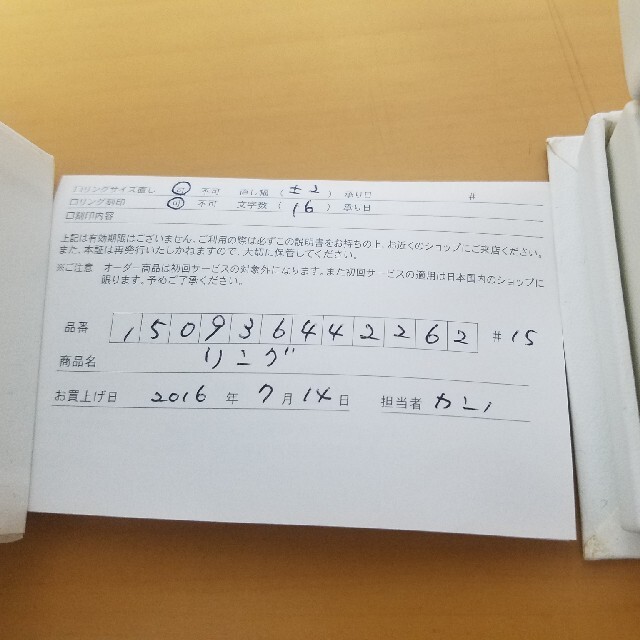 口リングサイズ直し 可 不可 直し幅 ( ±2 ) 承り日 #
口リング刻印 可 不可 文字数 ( 16 ) 承り日
口刻印内容
上記は有効期限はございません。ご利用の際は必ずこの説明書をお持ちの上、お近くのショップにご来店ください。
また、本証は再発行いたしかねますので、大切に保管してください。
※ご注意 オーダー商品は初回サービスの対象外になります。また初回サービスの適用は日本国内のショップに
限ります。予めご了承ください。
品番 150936442262 #15
商品名 リング
お買上げ日 2016 年 7 月 14 日 担当者